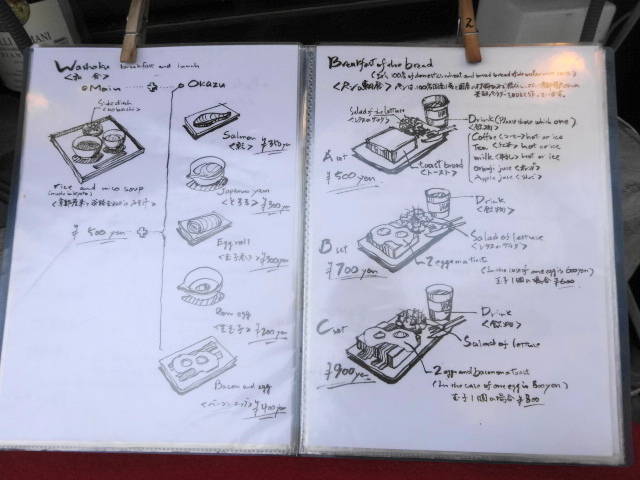 Washoku breakfast and lunch
<和食>
Main + Okazu
Side dish
rice and miso soup
¥500 yen +
Salmon
<鮭> ¥350 yen
Japanese yam
<とろろ> ¥300 yen
Egg roll
<玉子焼> ¥300 yen
Raw egg
<生玉子> ¥200 yen
Bacon and egg
<ベーコンエッグ> ¥400 yen
Breakfast of the bread
2
Salad of lettuce
<レタスのサラダ>
Drink (Please choose which one)
<飲物>
Coffee <コーヒー> hot or ice
Tea hot or ice
milk hot or ice
Orange juice
Apple juice
toast bread
<トースト>
A set
¥500 yen
Drink
<飲物>
Salad of lettuce
<レタスのサラダ>
B set
¥700 yen
2 eggs on a toast
(In the case of one egg is 600 yen)
玉子1個の場合 ¥600
Drink
<飲物>
Salad of lettuce
C set
¥900 yen
2 eggs and bacon on a toast
(In the case of one egg is 800 yen)
玉子1個の場合 ¥800